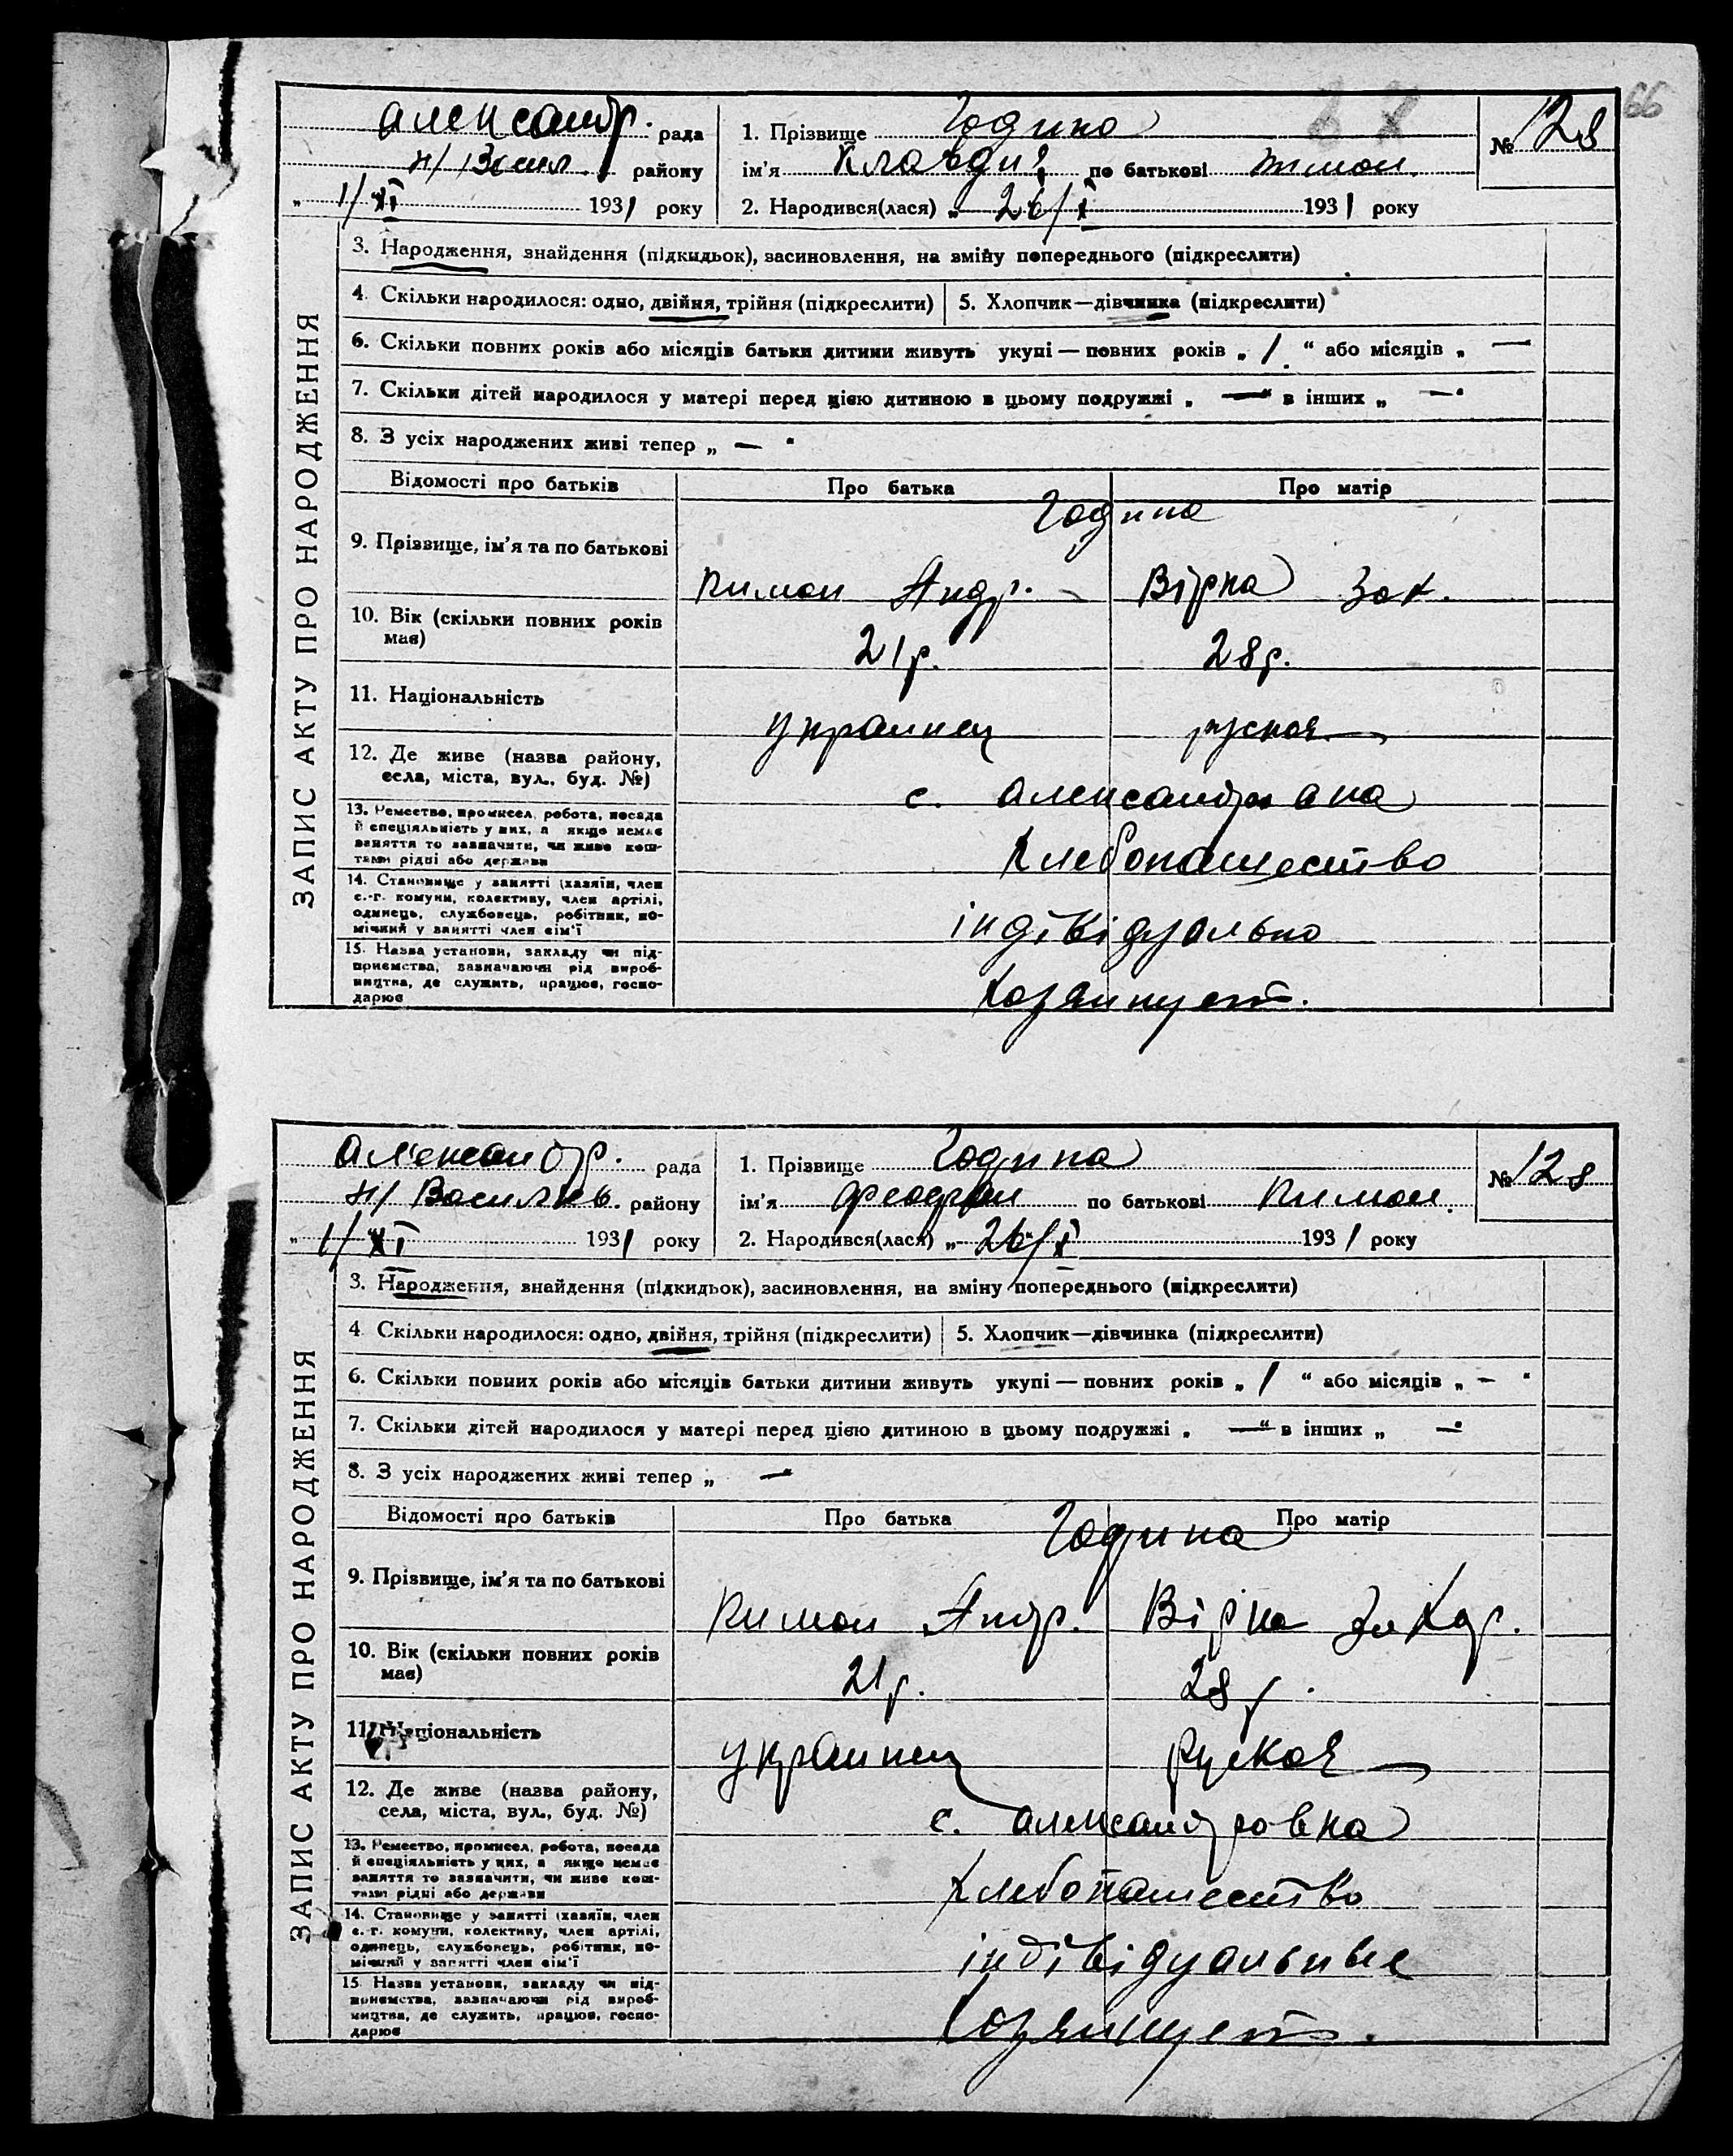 66
Александр. рада
н/Васил. району
„ 1/XI 1931 року
1. Прізвище Година
ім'я Клавдия по батькові тимон.
2. Народився(лася) „ 26/X 1931 року
№ 128
ЗАПИС АКТУ ПРО НАРОДЖЕННЯ
3. Народження, знайдення (підкидьок), засиновлення, на зміну попереднього (підкреслити)
4. Скільки народилося: одно, двійня, трійня (підкреслити) 5. Хлопчик—дівчинка (підкреслити)
6. Скільки повних років або місяців батьки дитини живуть укупі — повних років „ 1 “ або місяців „ —
7. Скільки дітей народилося у матері перед цією дитиною в цьому подружжі „ — “ в інших „ — “
8. З усіх народжених живі тепер „ — “
Відомості про батьків Про батька Про матір
Година
9. Прізвище, ім'я та по батькові
Тимон Андр. Вірка Зах.
10. Вік (скільки повних років має)
21р. 28р.
11. Національність
украинец руская
12. Де живе (назва району, села, міста, вул., буд. №)
с. Александровка
13. Ремество, промисел, робота, посада й спеціяльність у них, а якщо немає заняття то зазначити, чи живе коштами рідні або держави
хлебопашество
14. Становище у занятті (хазяїн, член с.-г. комуни, колективу, член артілі, одинець, службовець, робітник, помічний у занятті член сім'ї
індівідуально
15. Назва установи, закладу чи підприємства, зазначаючи рід виробництва, де служить, працює, господарює
хозяинует.
Александр. рада
н/Васильев. району
„ 1/XI 1931 року
1. Прізвище Година
ім'я по батькові Тимон.
2. Народився(лася) „ 26/X 1931 року
№ 128
ЗАПИС АКТУ ПРО НАРОДЖЕННЯ
3. Народження, знайдення (підкидьок), засиновлення, на зміну попереднього (підкреслити)
4. Скільки народилося: одно, двійня, трійня (підкреслити) 5. Хлопчик—дівчинка (підкреслити)
6. Скільки повних років або місяців батьки дитини живуть укупі — повних років „ 1 “ або місяців „ — “
7. Скільки дітей народилося у матері перед цією дитиною в цьому подружжі „ — “ в інших „ — “
8. З усіх народжених живі тепер „ — “
Відомості про батьків Про батька Про матір
Година
9. Прізвище, ім'я та по батькові
Тимон Андр. Вірка Захар.
10. Вік (скільки повних років має)
21р. 28р.
11. Національність
украинец руская
12. Де живе (назва району, села, міста, вул., буд. №)
с. Александровка
13. Ремество, промисел, робота, посада й спеціяльність у них, а якщо немає заняття то зазначити, чи живе коштами рідні або держави
хлебопашество
14. Становище у занятті (хазяїн, член с.-г. комуни, колективу, член артілі, одинець, службовець, робітник, помічний у занятті член сім'ї
індівідуальные
15. Назва установи, закладу чи підприємства, зазначаючи рід виробництва, де служить, працює, господарює
хозяинует.